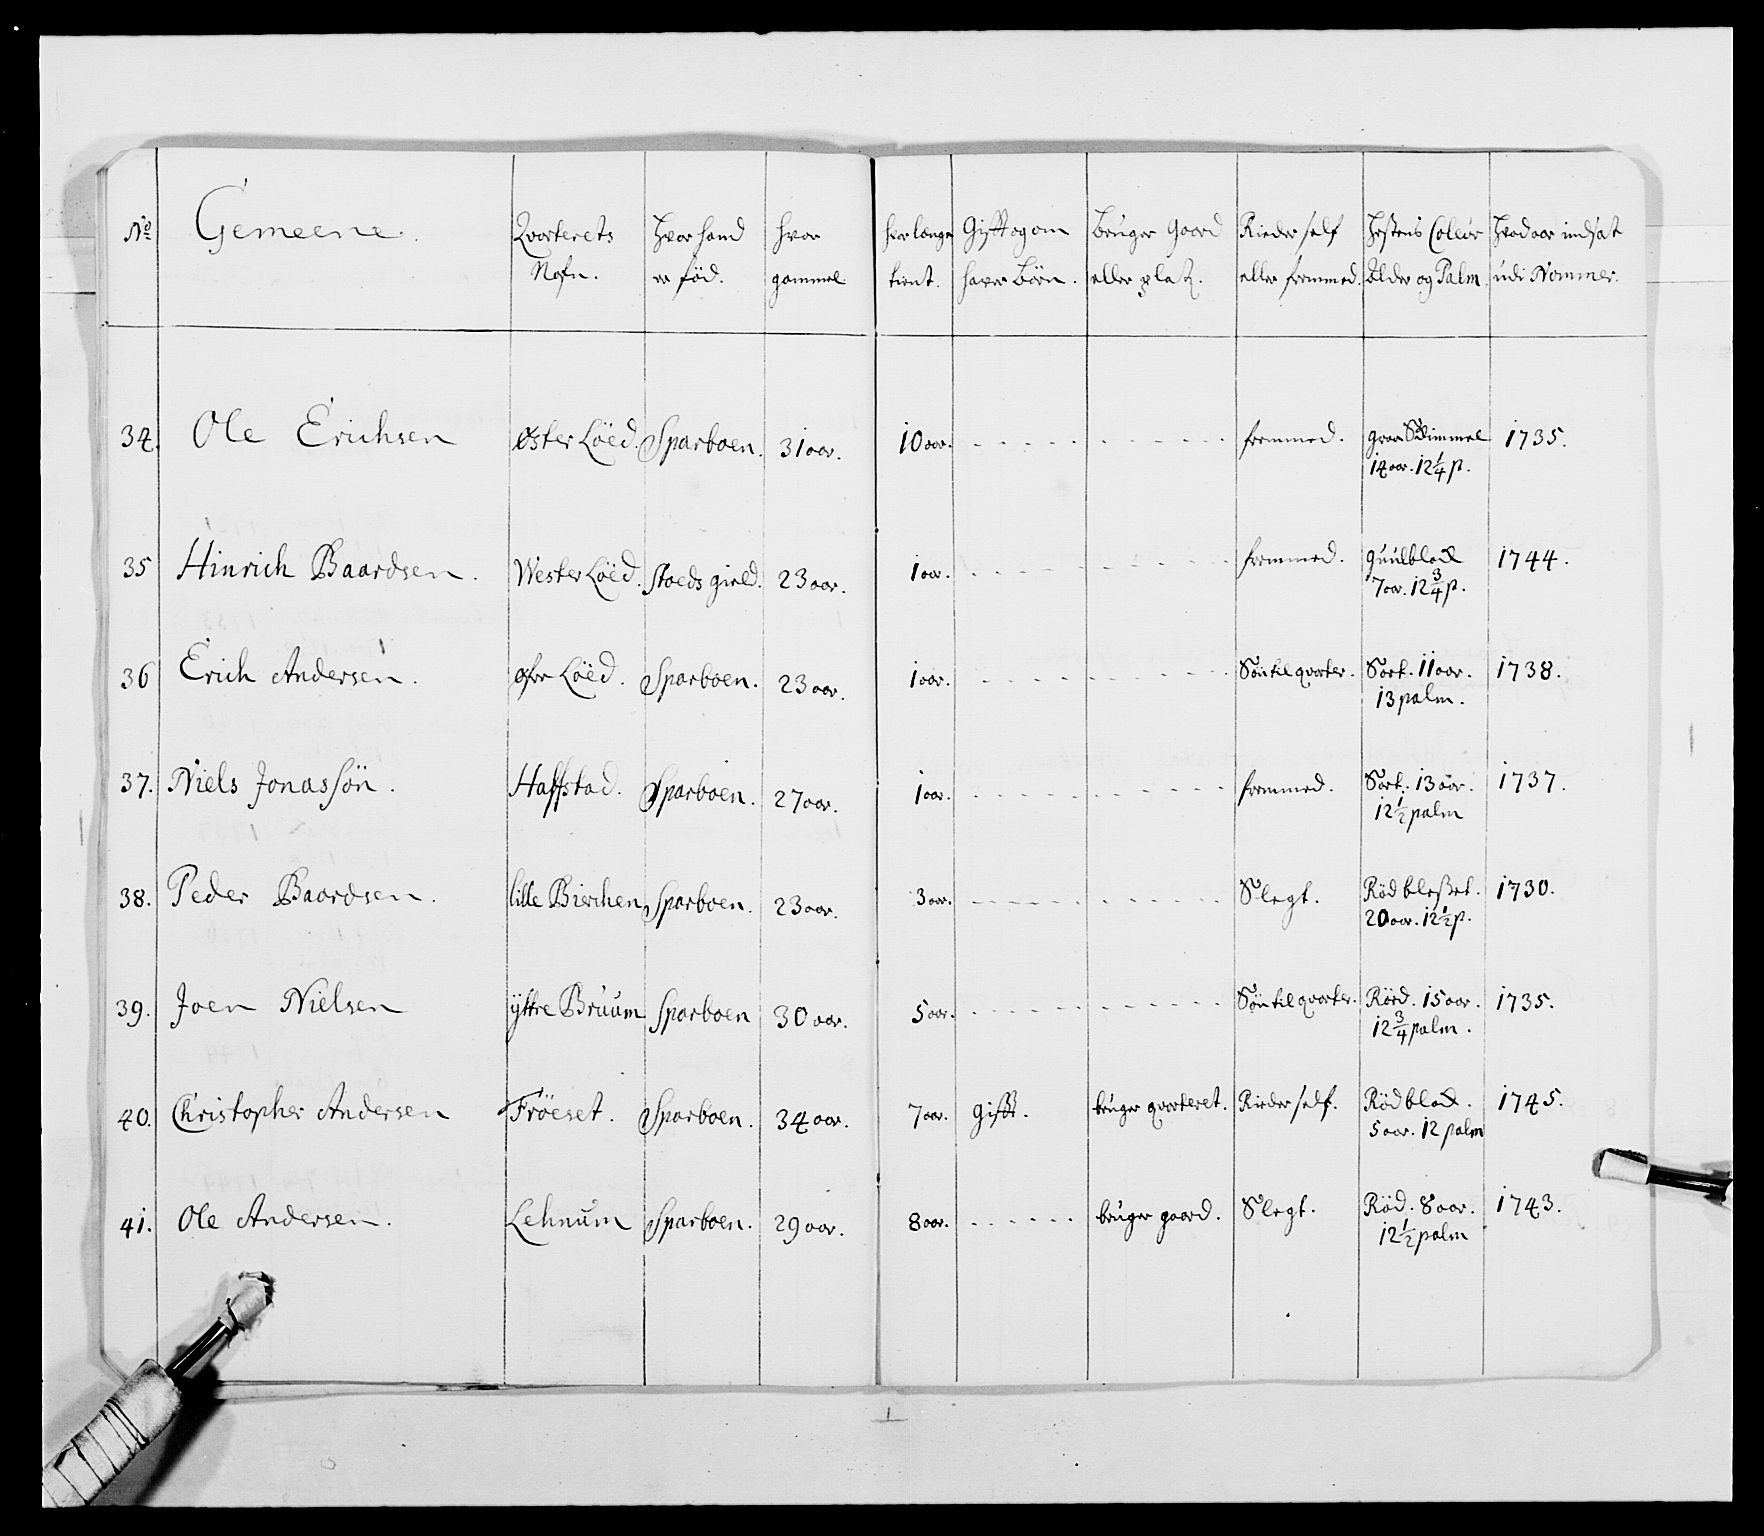 No Gemeene. Qvarterets Nafn. Hvor hand er föd. hvor gammel hvor lenge tient. Gifft og om haver Börn. bruger Gaard eller plats. Rieder self eller fremmed. Hestens Coleur Alder og Palm. Hvad aar indsat udi Nommer.
34. Ole Erichsen Øster Löed. Sparboen. 31 aar. 10 aar. fremmed. graa Skimmel 1735.
14 aar. 12 1/4 p.
35 Hinrich Baardsen. Wester Löed. Stoeds gield. 23 aar. 1 aar. fremmed. Guulblak 1744.
7 aar. 12 3/4 p.
36 Erich Andersen. øfre Löed. Sparboen. 23 aar. 1 aar. Sön til qvarter. Sort. 11 aar. 1738.
13 palm.
37. Niels Jonassön. Haffstad. Sparboen. 27 aar. 1 aar. fremmed. Sort. 13 aar. 1737.
12 1/2 palm
38. Peder Baardsen. lille Bierchen Sparboen. 23 aar. 3 aar. Slegt. Röd blesset. 1730.
20 aar. 12 1/2 p.
39. Joen Nielsen ÿttre Bruum Sparboen 30 aar. 5 aar. Sön til qvarter. Rörd. 15 aar. 1735.
12 3/4 palm.
40. Christopher Andersen Fröeset. Sparboen. 34 aar. 7 aar. Gifft. bruger qvarteret. Rieder self. Rödblak. 1745.
5 aar. 12 palm
41. Ole Andersen. Lehnum Sparboen. 29 aar. 8 aar. bruger gaard. Slegt. Röd. 8 aar. 1743.
12 1/2 palm